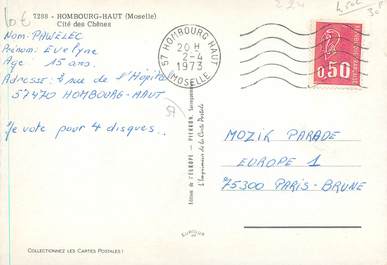 7288 - HOMBOURG-HAUT (Moselle)
Cité des Chênes
Nom: PAWELEC
Prénom: Evelyne
Age: 15 ans.
Adresse: 2 rue de l'Hôpital
57470 HOMBOURG-HAUT
Je vote pour 4 disques..
COLLECTIONNEZ LES CARTES POSTALES !
57 HOMBOURG HAUT
20 H
2-4
1973
(MOSELLE)
Editions de l'EUROPE - PIERRON, Sarreguemines
L'Imprimerie de la Carte Postale
EUROLUX
0,50
MOZIK PARADE
EUROPE 1
75300 PARIS-BRUNE
57